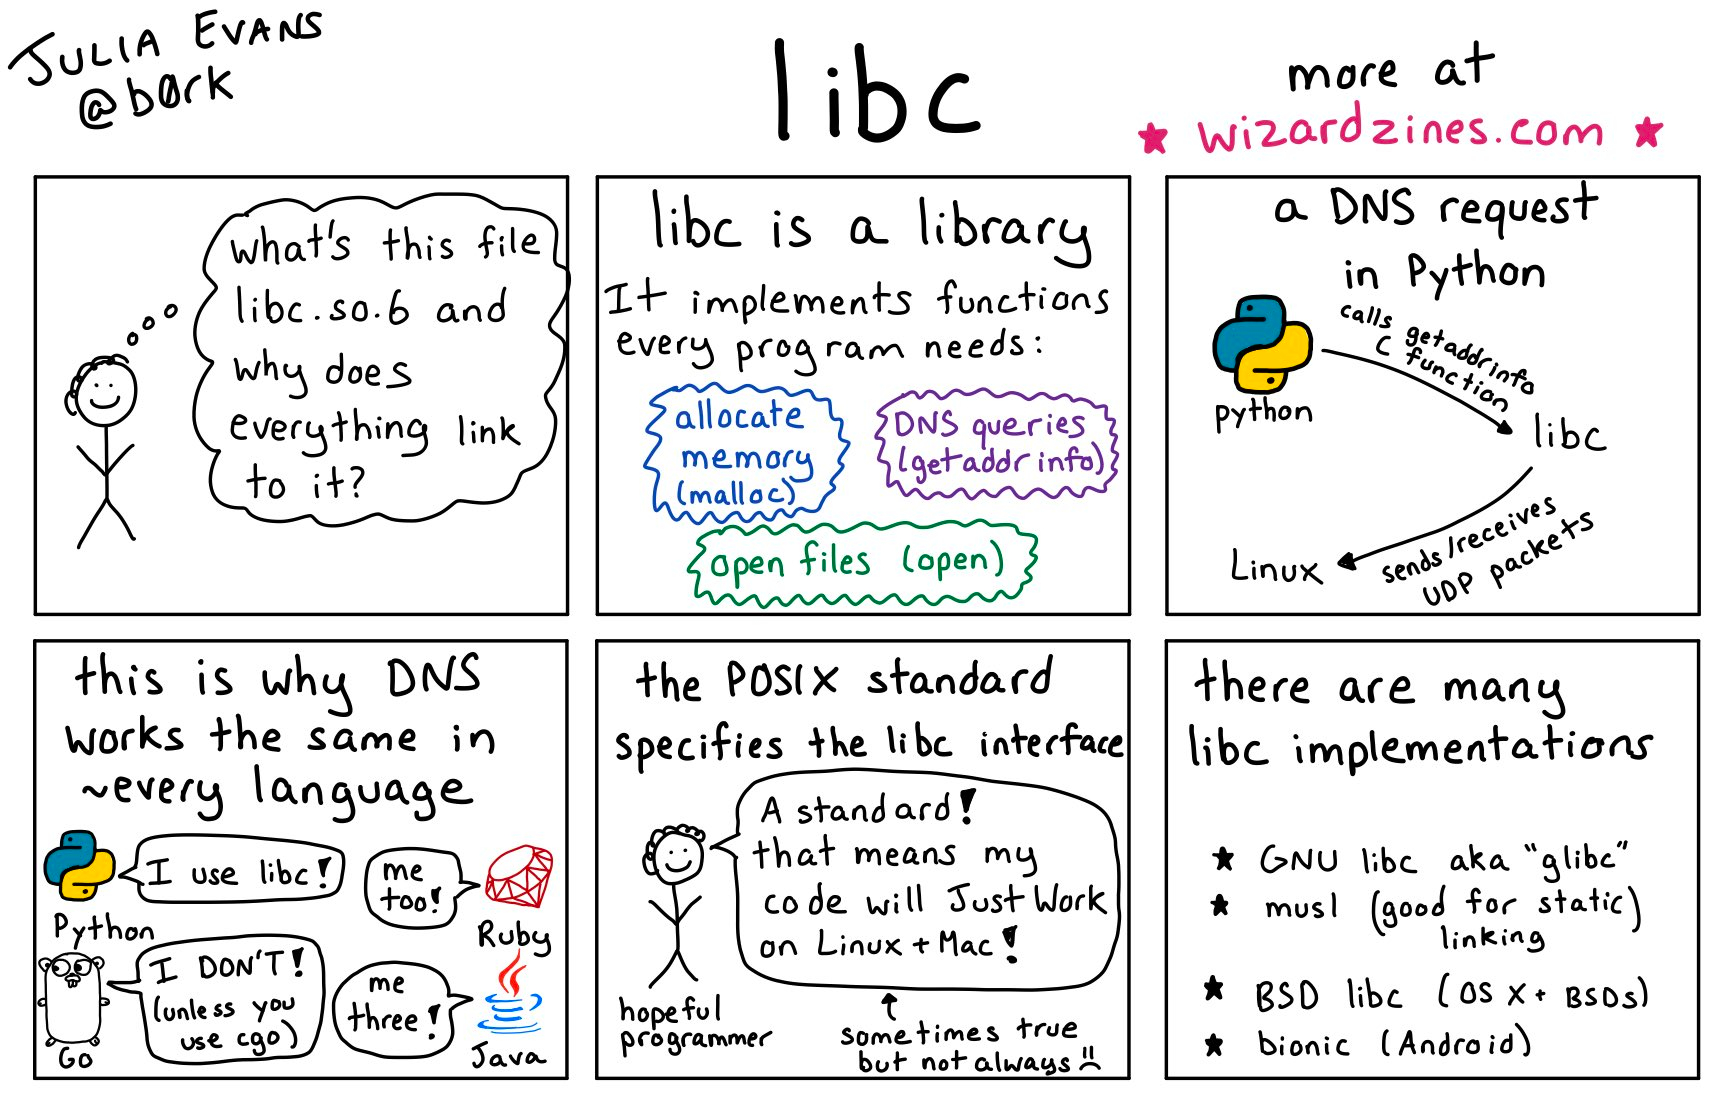 JULIA EVANS
@b0rk
libc
more at
★ wizardzines.com ★
what's this file
libc.so.6 and
why does
everything link
to it?
libc is a library
It implements functions
every program needs:
allocate
memory
(malloc)
DNS queries
(getaddrinfo)
open files (open)
a DNS request
in Python
python
calls getaddrinfo
C function
libc
sends/receives
UDP packets
Linux
this is why DNS
works the same in
~every language
I use libc!
Python
me
too!
Ruby
I DON'T!
(unless you
use cgo)
Go
me
three!
Java
the POSIX standard
specifies the libc interface
A standard!
that means my
code will Just Work
on Linux + Mac!
hopeful
programmer
sometimes true
but not always
there are many
libc implementations
★ GNU libc aka "glibc"
★ musl (good for static)
linking
★ BSD libc (OS X + BSDs)
★ bionic (Android)